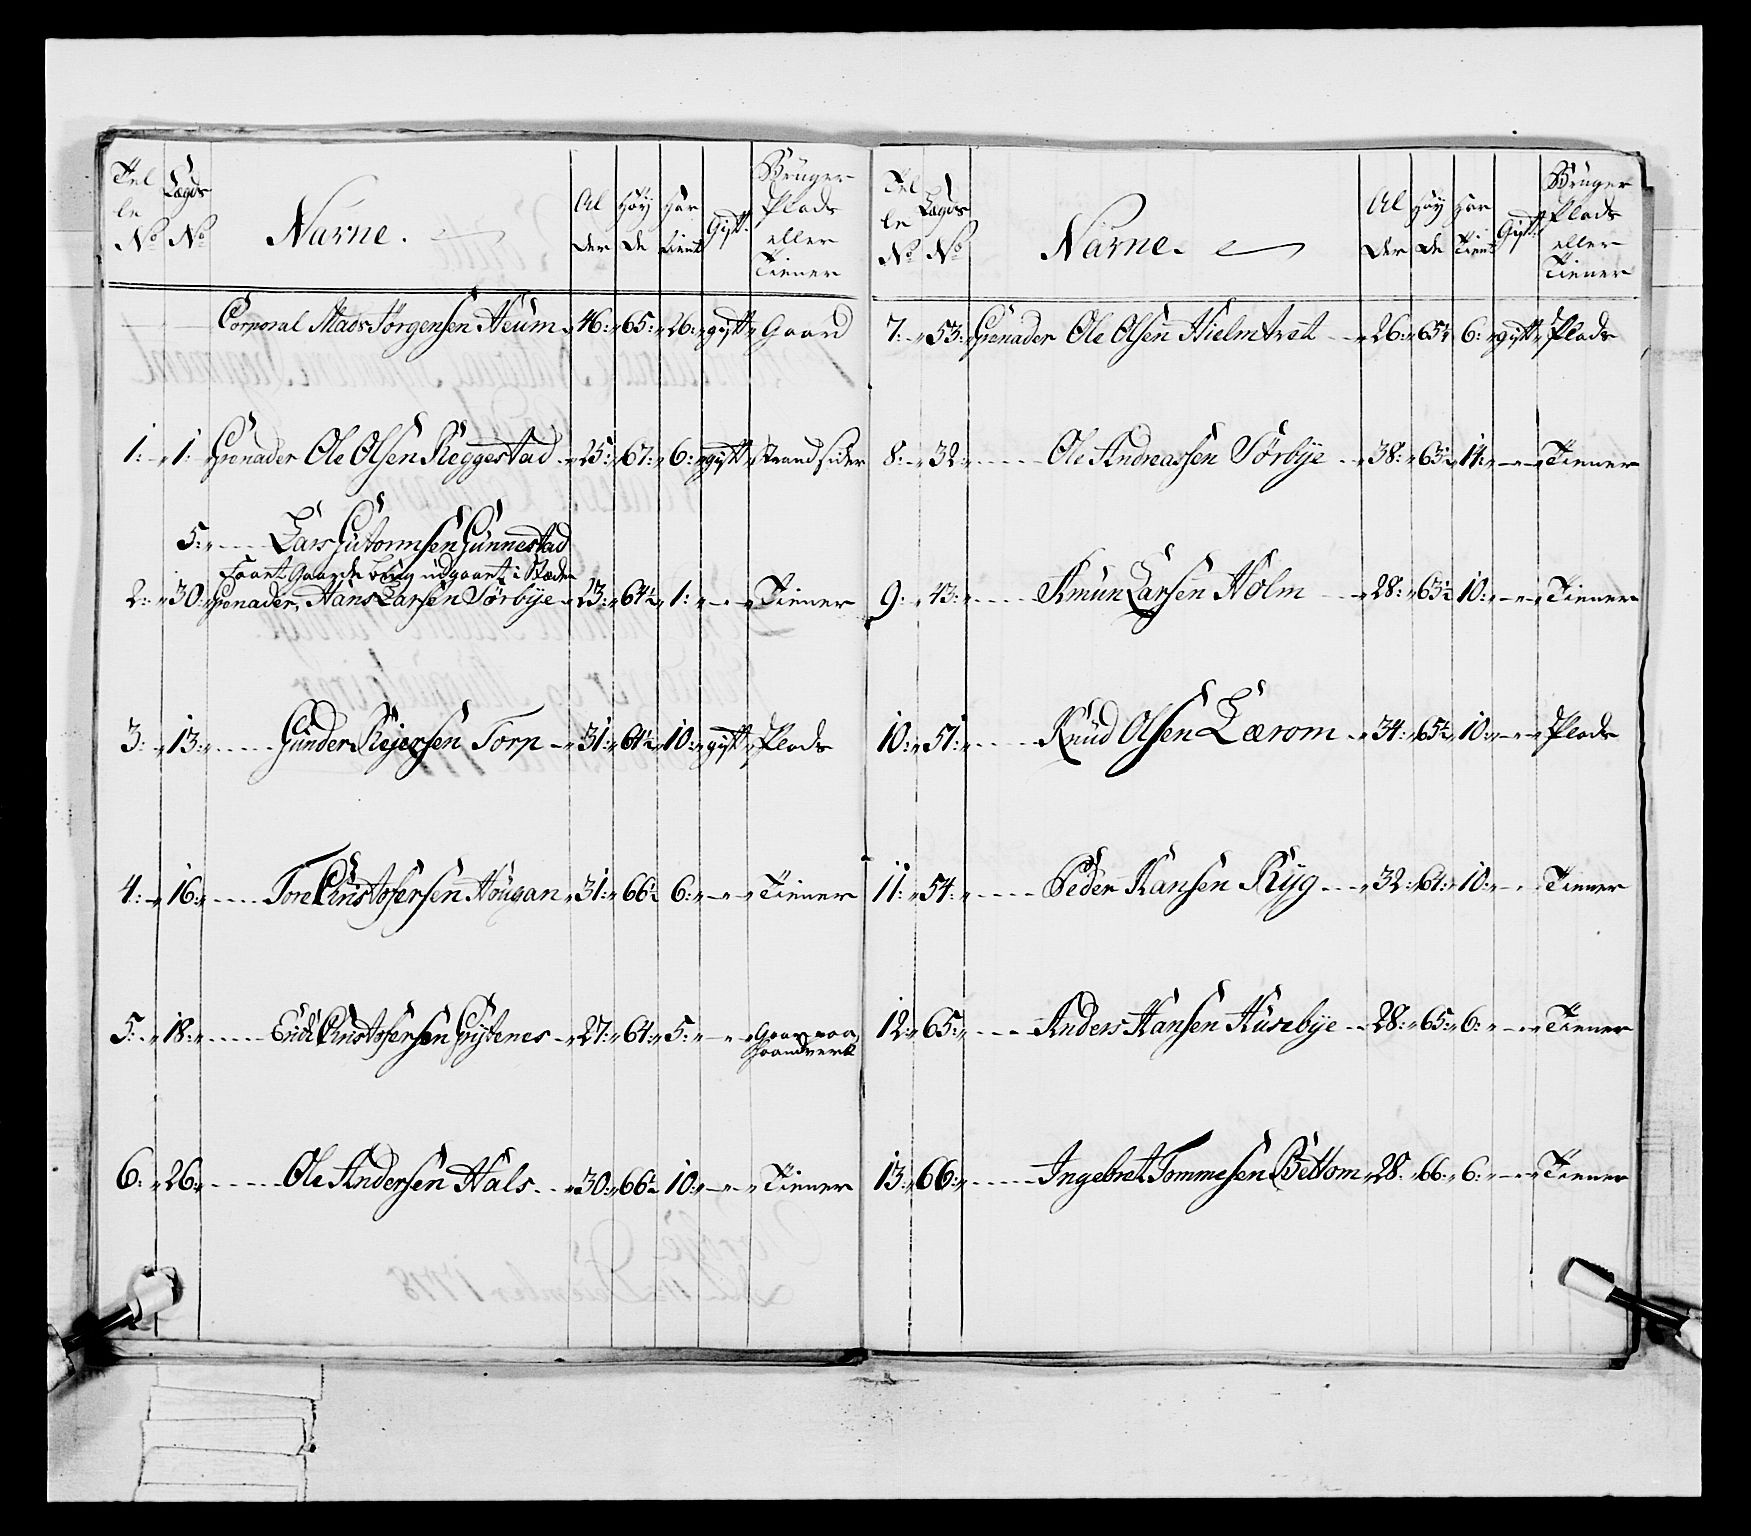 Tel
le
No
Lægds
No
Navne.
Al
der
Høy
de
Har
tient
Gift.
Brüger
Plads
eller
Tiener
Corporal Mads Jörgensen Heum 46: 65: 26: gift Gaard
1: 1: Grenader Ole Olsen Reggestad 25: 67: 6: gift Strandsider
5: Lars Gutormsen Gunnestad
Faaet Gaards brug udgaaet i Stæden
2: 30: Grenader, Hans Larsen Sörbye 23: 64½ 1: Tiener
3: 13: Gunder Rejersen Torp 31: 61½ 10: gift Plads
4: 16: Tore Christofersen Hougan 31: 66½ 6: Tiener
5: 18: Christofersen 27: 64: 5:
Haandverk
6: 26: Ole Andersen Hals 30: 66½ 10: Tiener
Tel
le
No
Lægds
No
Navne.
Al
der
Høy
de
Har
Tient
Gift.
Brüger
Plads
eller
Tiener
7: 53: Grenader Ole Olsen Hielmtvet 26: 65½ 6: gift Plads
8: 32: Ole Andreassen Sörbye 38: 63½ 14: Tiener
9: 43: Amun Larsen Holm 28: 63½ 10: Tiener
10: 51: Knud Olsen Lærom 34: 65½ 10: Plads
11: 54: Peder Hansen Ryg 32: 61: 10: Tiener
12: 65: Anders Hansen Husebye 28: 65: 6: Tiener
13: 66: Ingebret Tommesen Bettom 28: 66: 6: Tiener